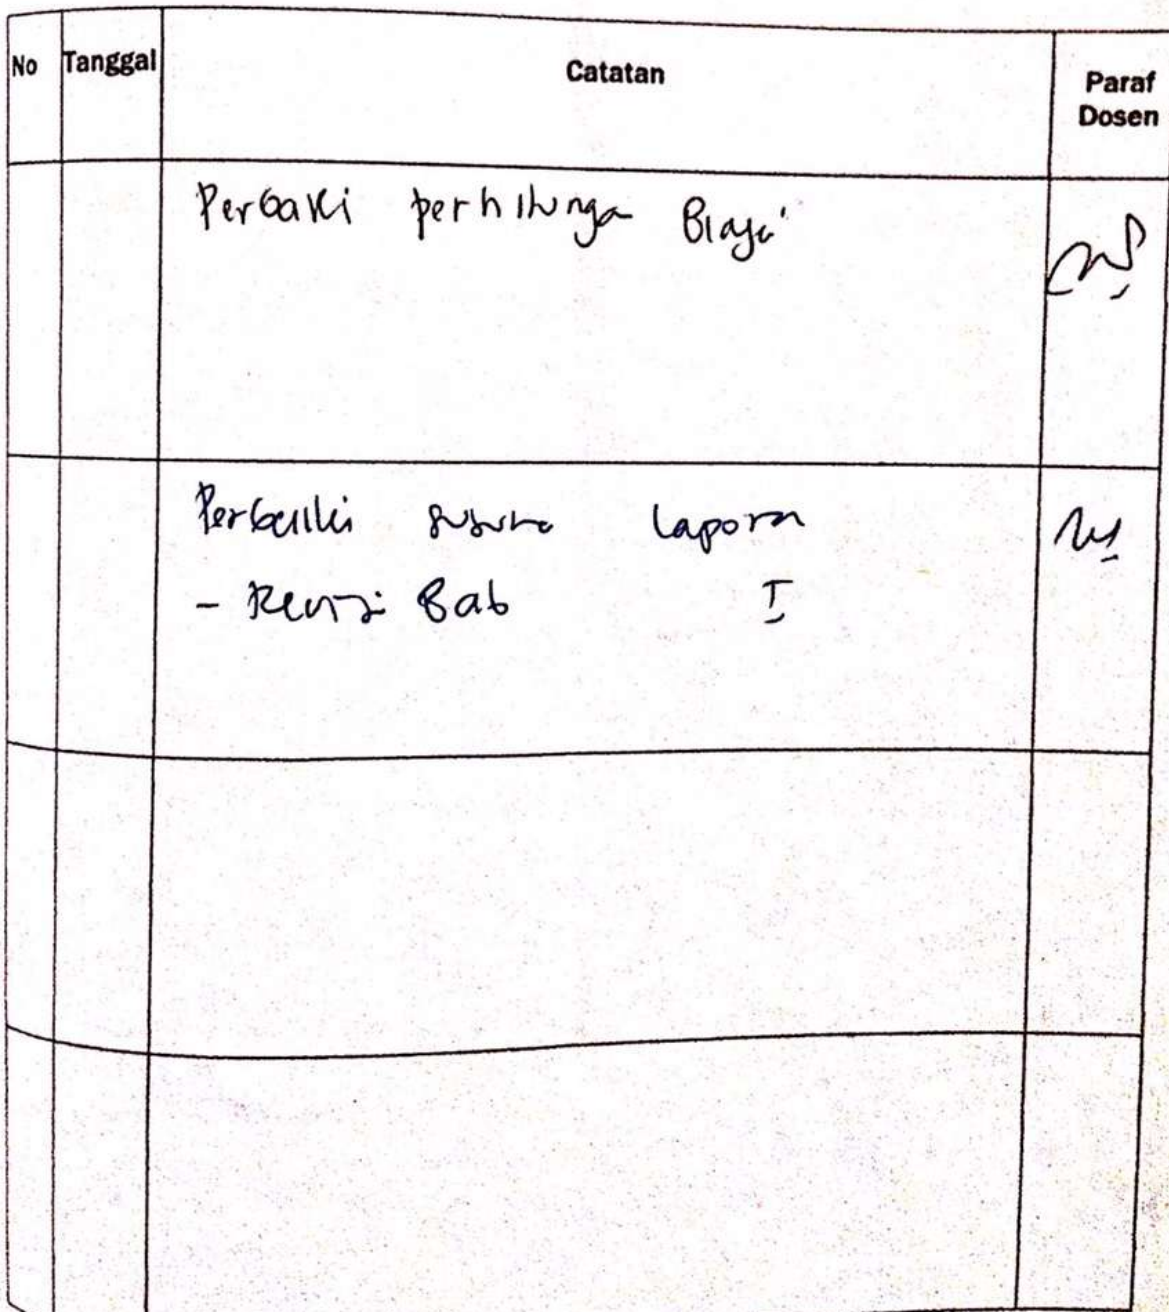 No Tanggal Catatan Paraf Dosen
Perbaiki perhitunga Biaya
Perbaiki susuna laporn
- Revisi Bab I